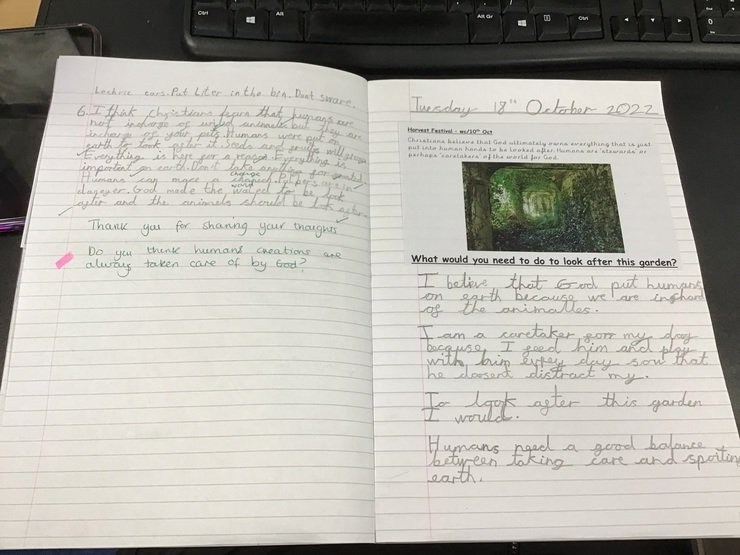 Lechric cars. Put Liter in the bin. Dont sware.
6. I think Christians learn that humans are
not incharge of animals but they are
incharge of your pets. Humans were put on
earth to look after it Seeds and will
Everything is here for a reason. Everything is
important on earth. Don't take for granted.
change
Humans can make a in
world
dangever. God made the to be look
after and the animels should be look after.
Thank you for sharing your thoughts
Do you think humans creations are
always taken care of by God?
Tuesday 18th October 2022
Harvest Festival - wc/10th Oct
Christians believe that God ultimately owns everything that is just
put into human hands to be looked after. Humans are 'stewards' or
perhaps 'caretakers' of the world for God.
What would you need to do to look after this garden?
I believe that God put humans
on earth because we are inghard
of the animalles.
I am a caretaker forr my dog
because I feed him and play
with him evrey day sow that
he dosent distract my.
To look after this garden
I would.
Humans need a good balance
between taking care and spoiting
earth.
Ctrl
Alt
Alt Gr
Ctrl
0
Ins